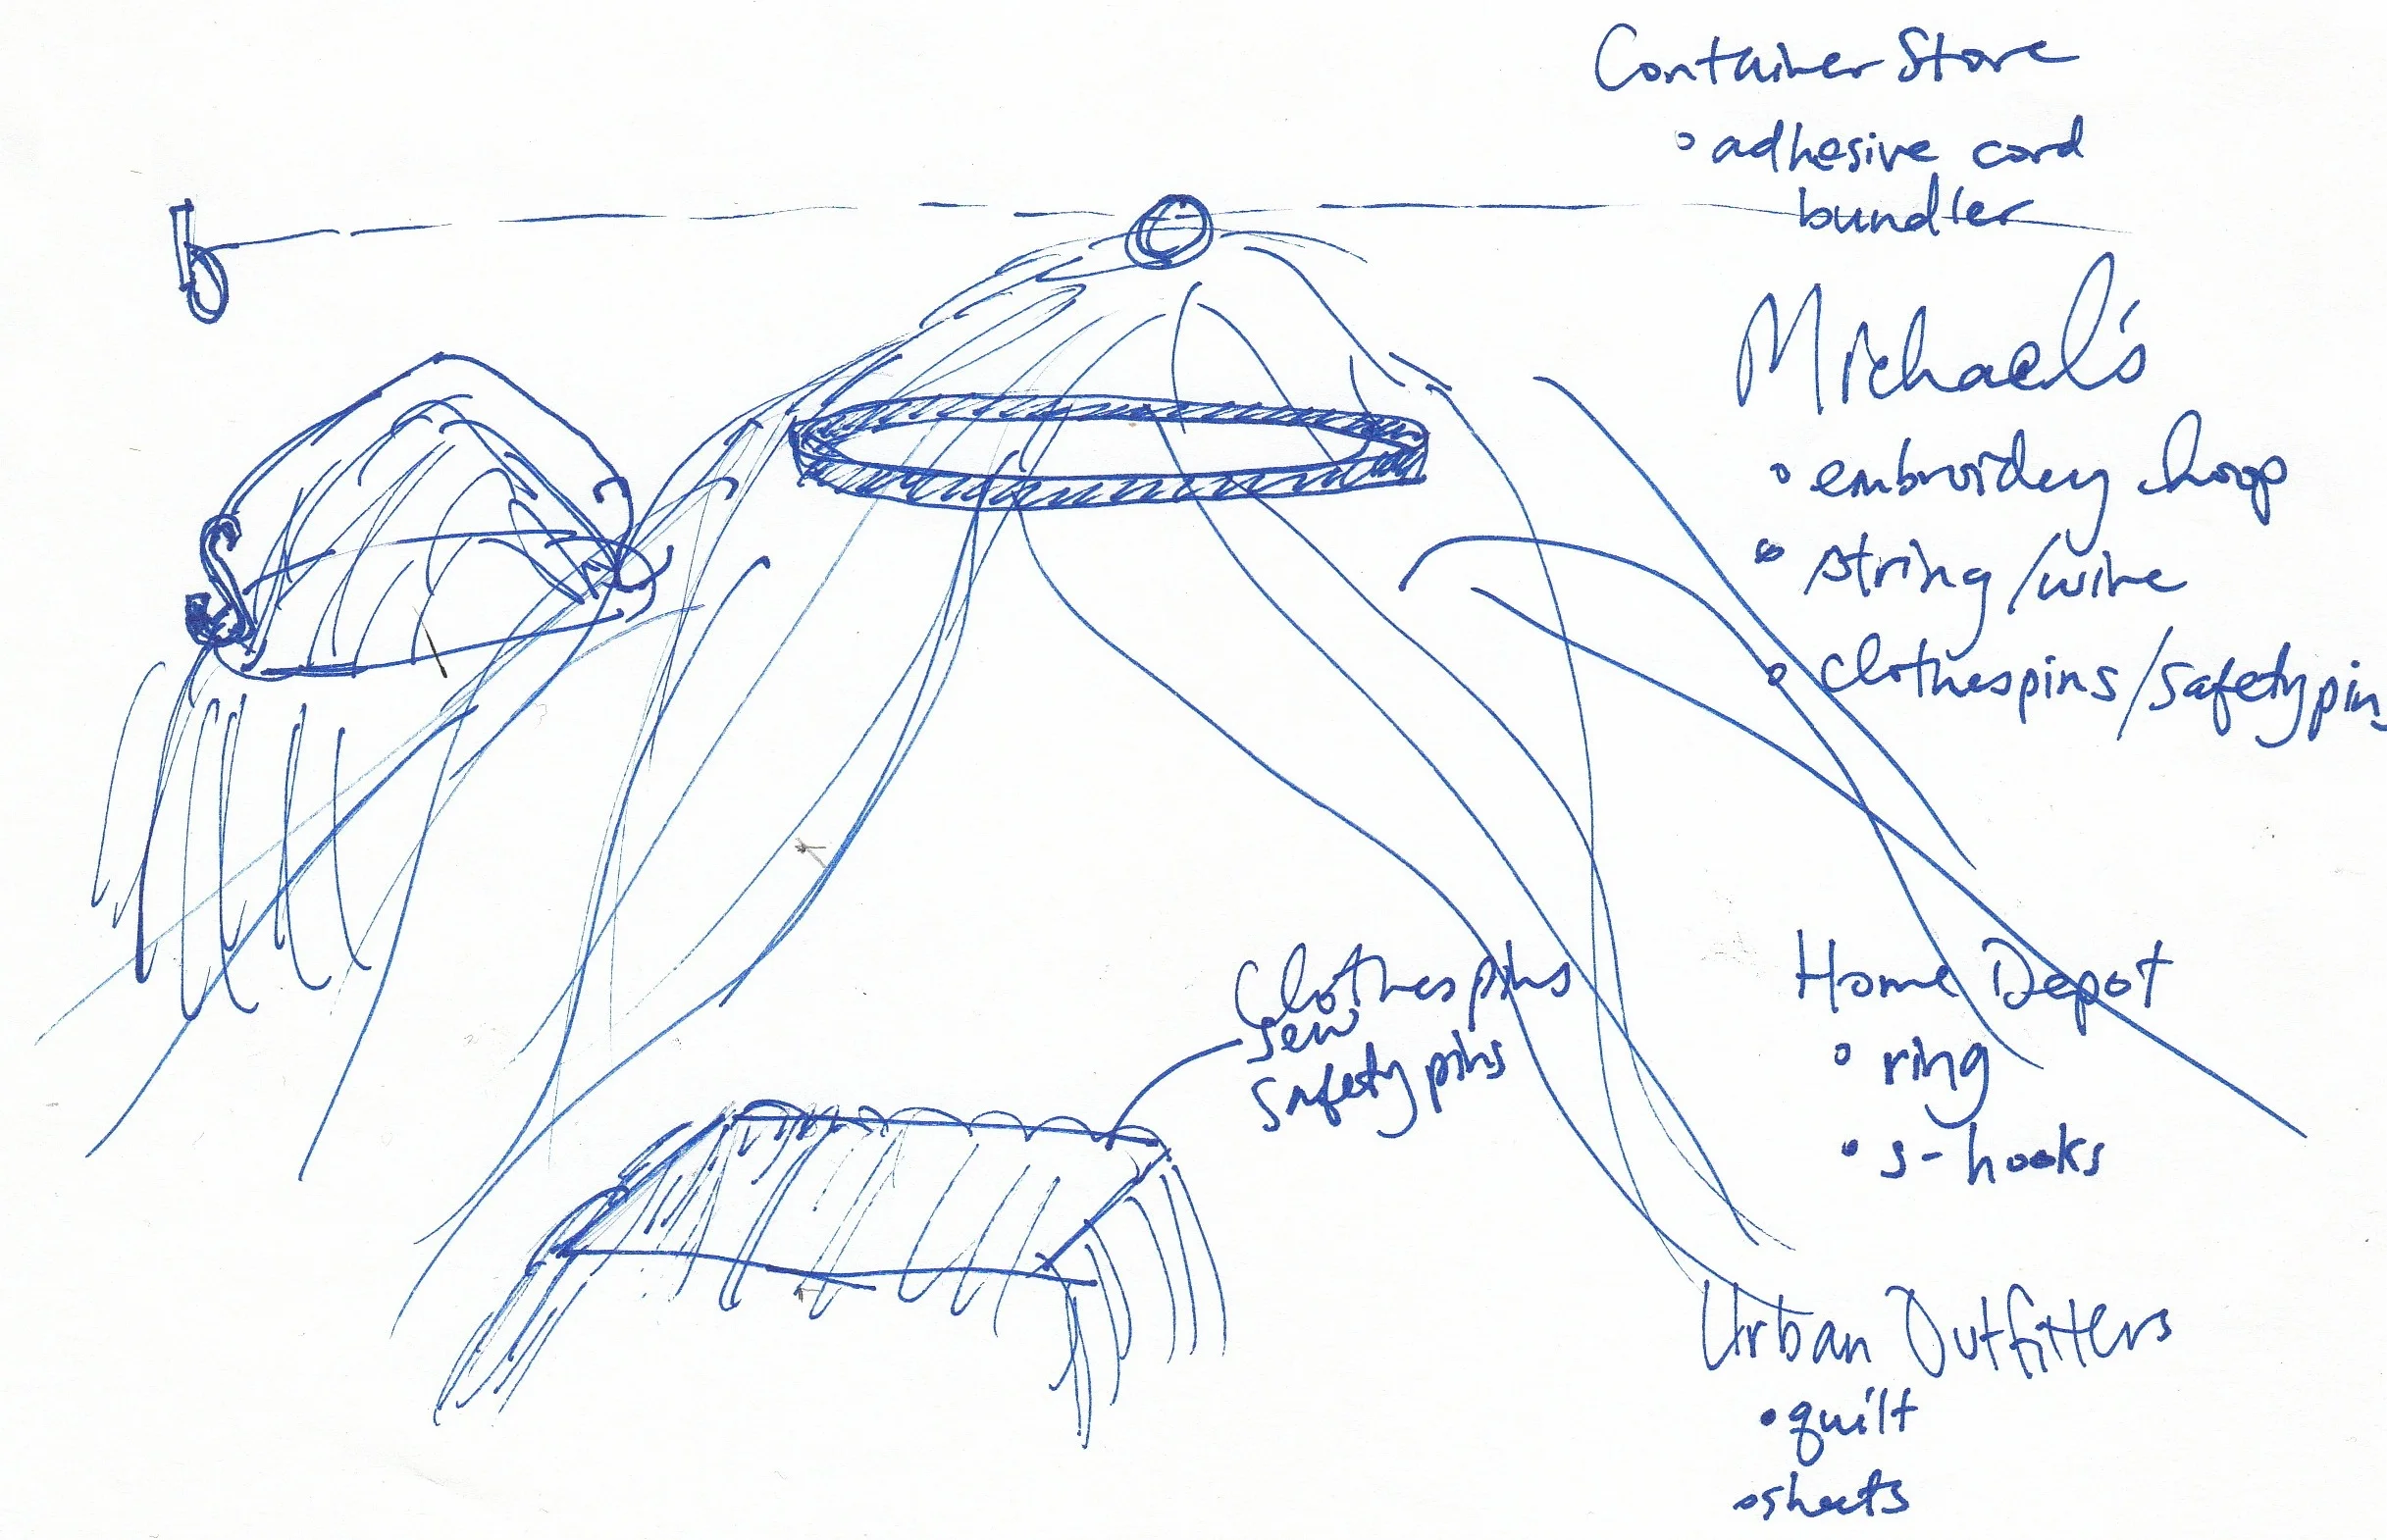 Container Store
° adhesive cord
bundler
Michael's
° embroidery hoop
° string/wire
° clothespins/safetypins
Clothespins
sew
safetypins
Home Depot
° ring
• s-hooks
Urban Outfitters
• quilt
• sheets